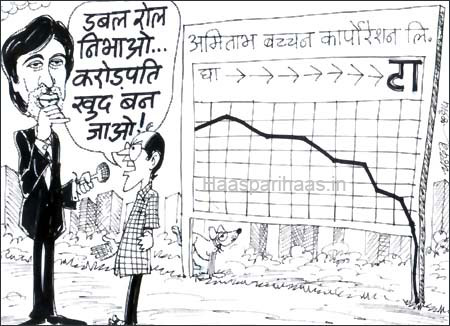 डबल रोल
निभाओ...
करोड़पति
खुद बन
जाओ!
अमिताभ बच्चन कार्पोरेशन लि.
घा →→→→→→→ टा
Haasparihaas.in